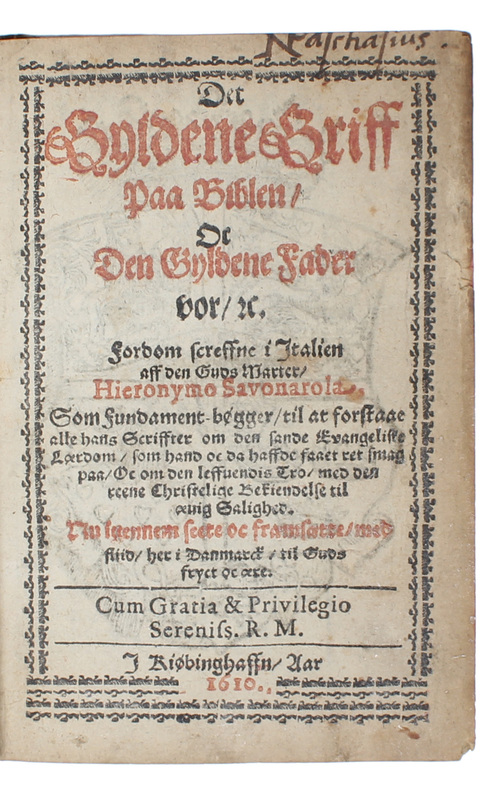 Paschasius.
Det
Gyldene Griff
Paa Biblen/
Oc
Den Gyldene Fader
vor/ ꝛc.
Fordom screffne i Italien
aff den Guds Marter/
Hieronymo Savonarola.
Som Fundament-bøgger/til at forstaae
alle hans Scriffter om den sande Evangeliske
Lærdom/ som hand oc da haffde faaet ret smag
paa/ Oc om den leffuendis Tro/ med den
reene Christelige Bekiendelse til
æuig Salighed.
Nu igennem seete oc framsatte/med
fliid/ her i Danmarck/ til Guds
fryct oc ære.
Cum Gratia & Privilegio
Sereniss. R. M.
I Kiøbinghaffn/ Aar
1610.